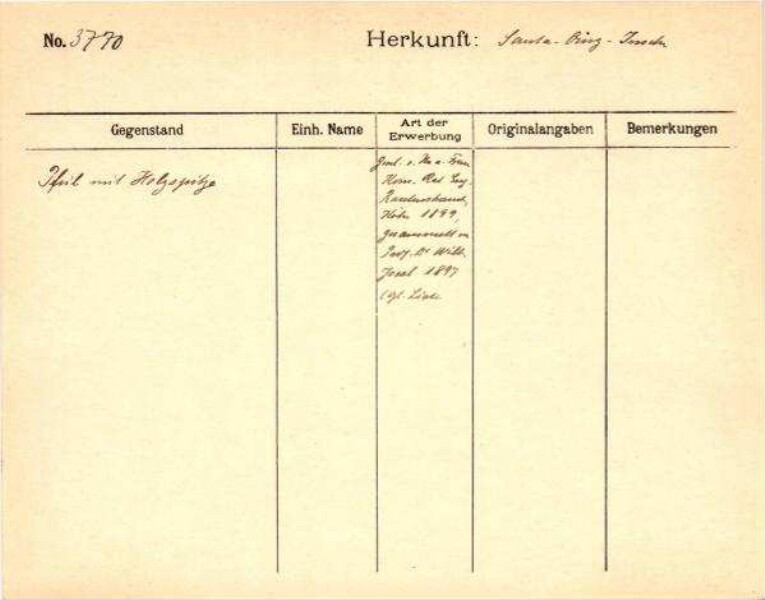 No. 3770
Herkunft: Santa-Cruz-Inseln
Gegenstand
Einh. Name
Art der
Erwerbung
Originalangaben
Bemerkungen
Pfeil mit Holzspitze
Gesch. v. Hr. u. Frau
Kom. Rat Eug.
Rautenstrauch,
Köln 1899,
gesammelt v.
Prof. Dr Wilh.
Joest 1897